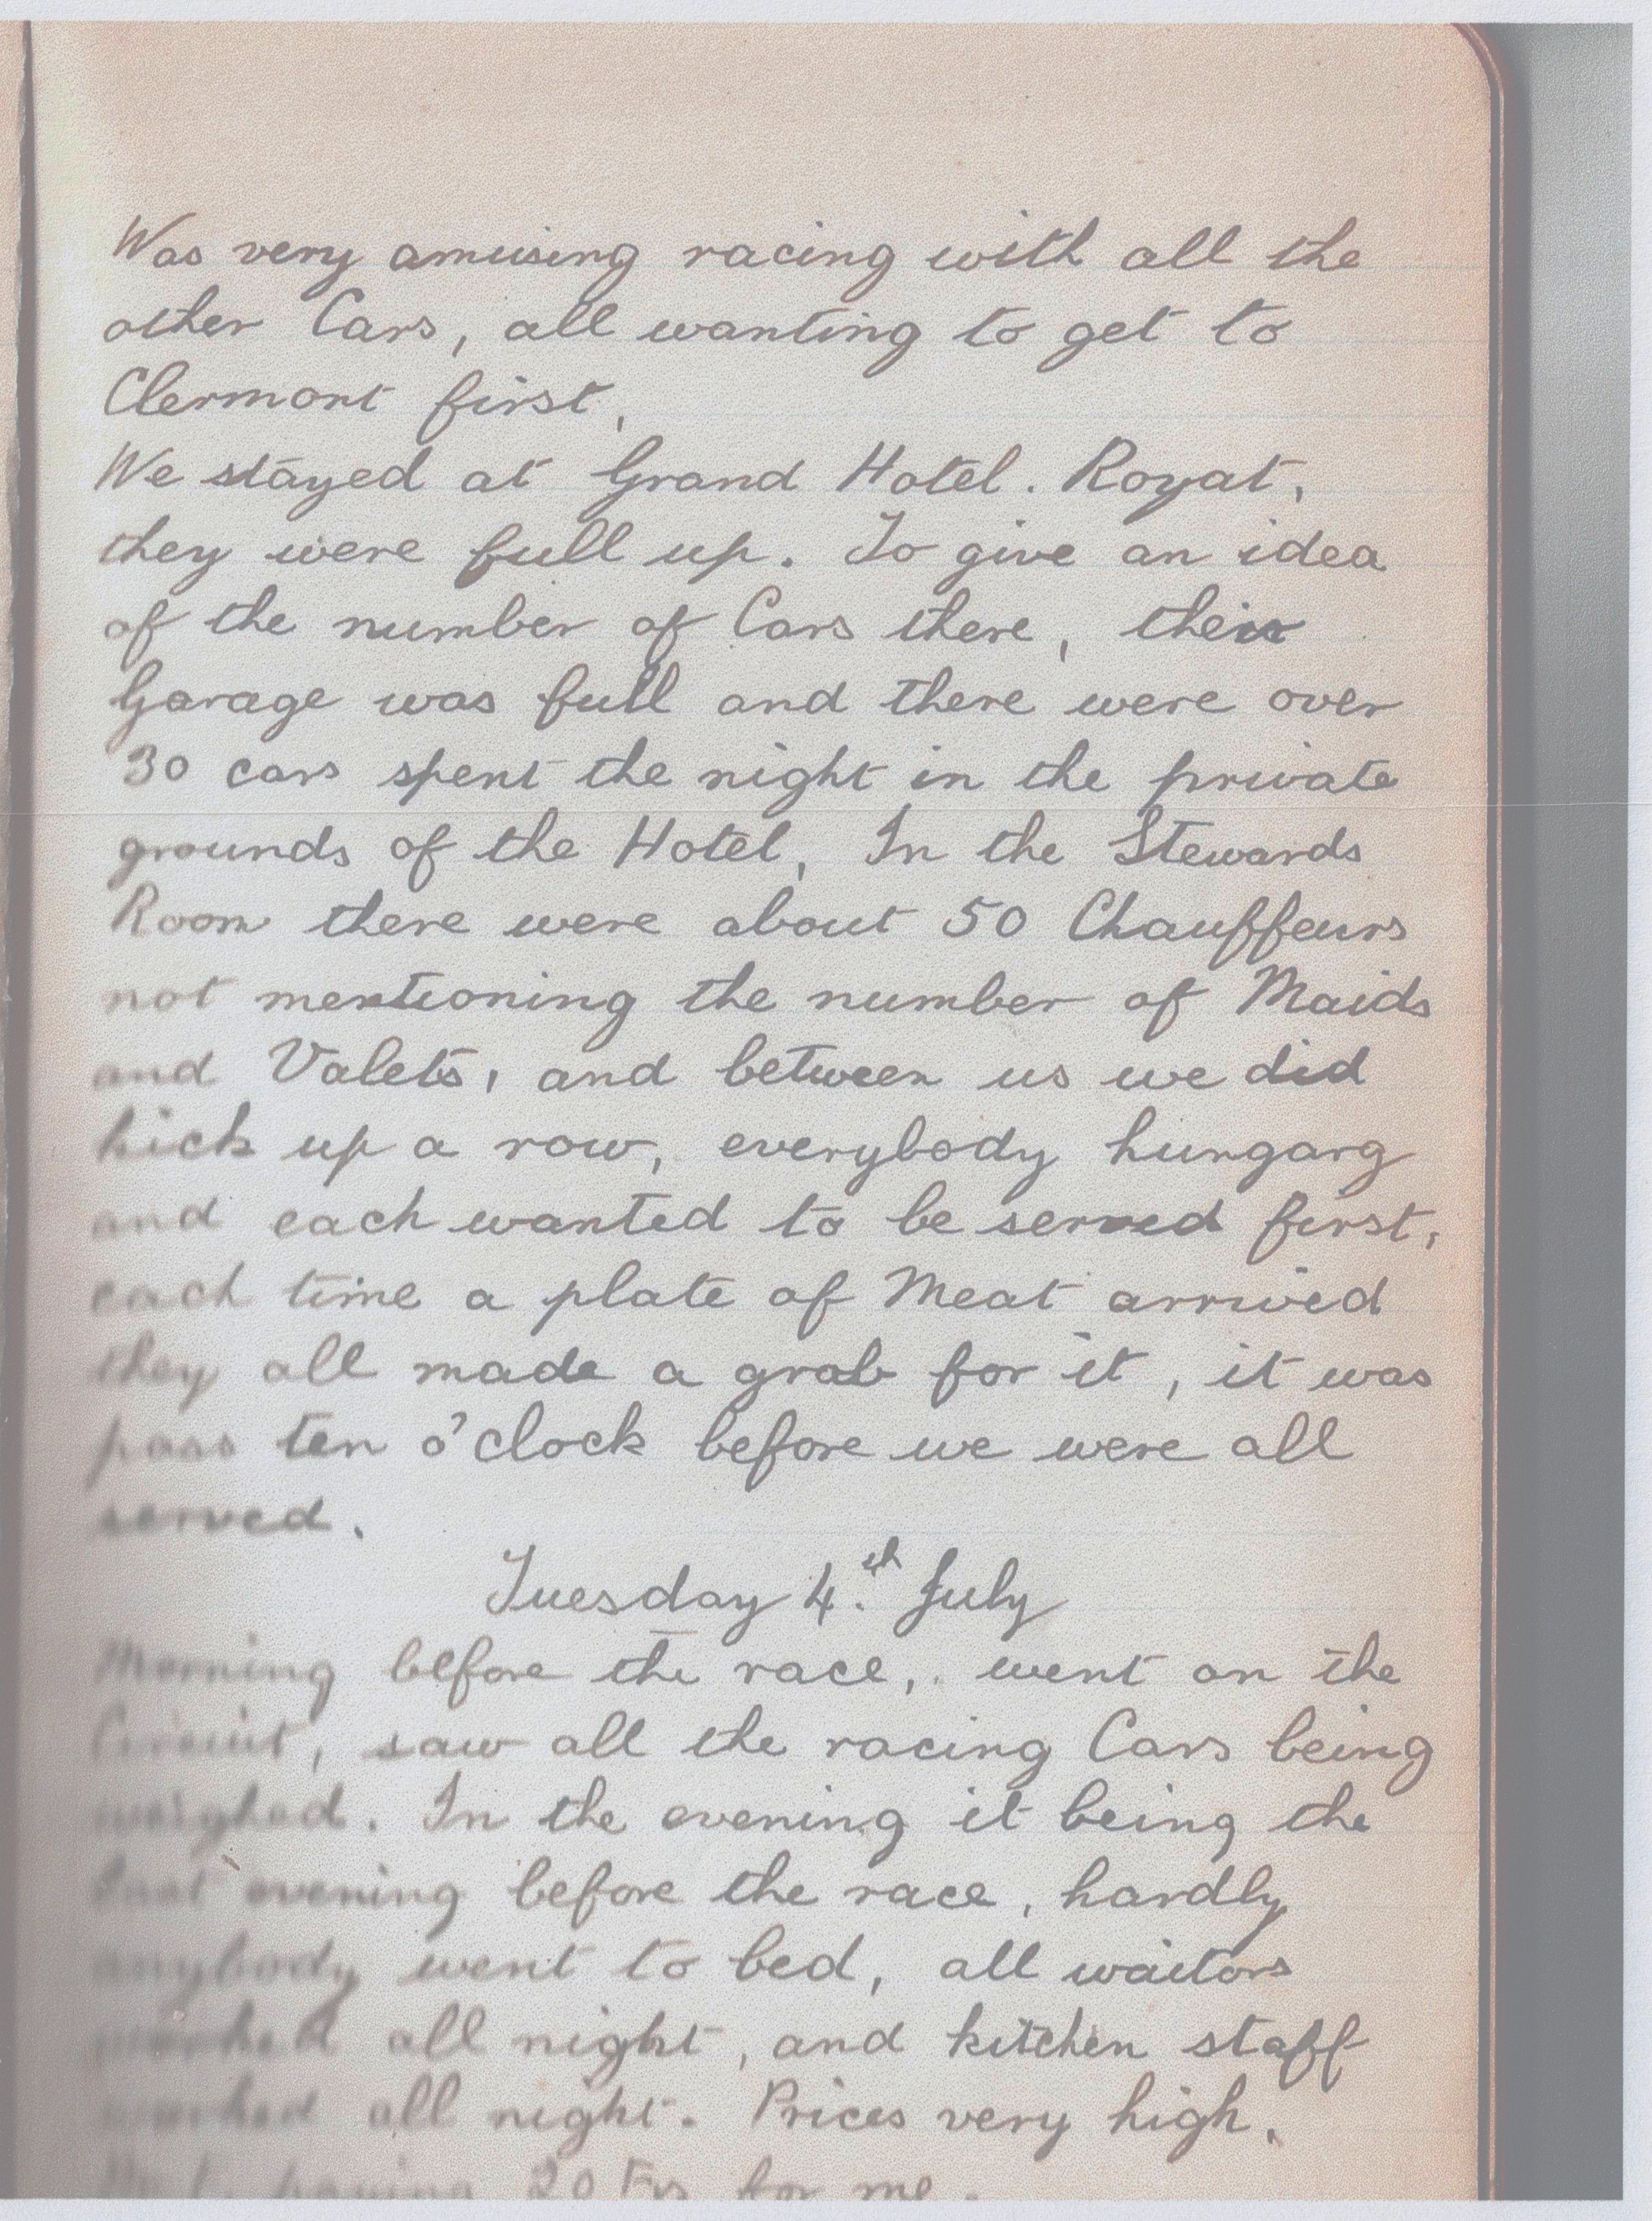 Was very amuising racing with all the
other Cars, all wanting to get to
Clermont first,
We stayed at Grand Hotel. Royat,
they were full up. To give an idea
of the number of Cars there, their
Garage was full and there were over
30 cars spent the night in the private
grounds of the Hotel, In the Stewards
Room there were about 50 Chauffeurs
not mentioning the number of Maids
and Valets, and between us we did
kick up a row, everybody hungarg
and each wanted to be served first,
each time a plate of Meat arrived
they all made a grab for it, it was
pass ten o'clock before we were all
served.
Tuesday 4.th July
Morning before the race, went on the
Circuit, saw all the racing Cars being
weighed. In the evening it being the
last evening before the race, hardly
anybody went to bed, all waitors
worked all night, and kitchen staff
worked all night. Prices very high,
paying 20 Frs for me.